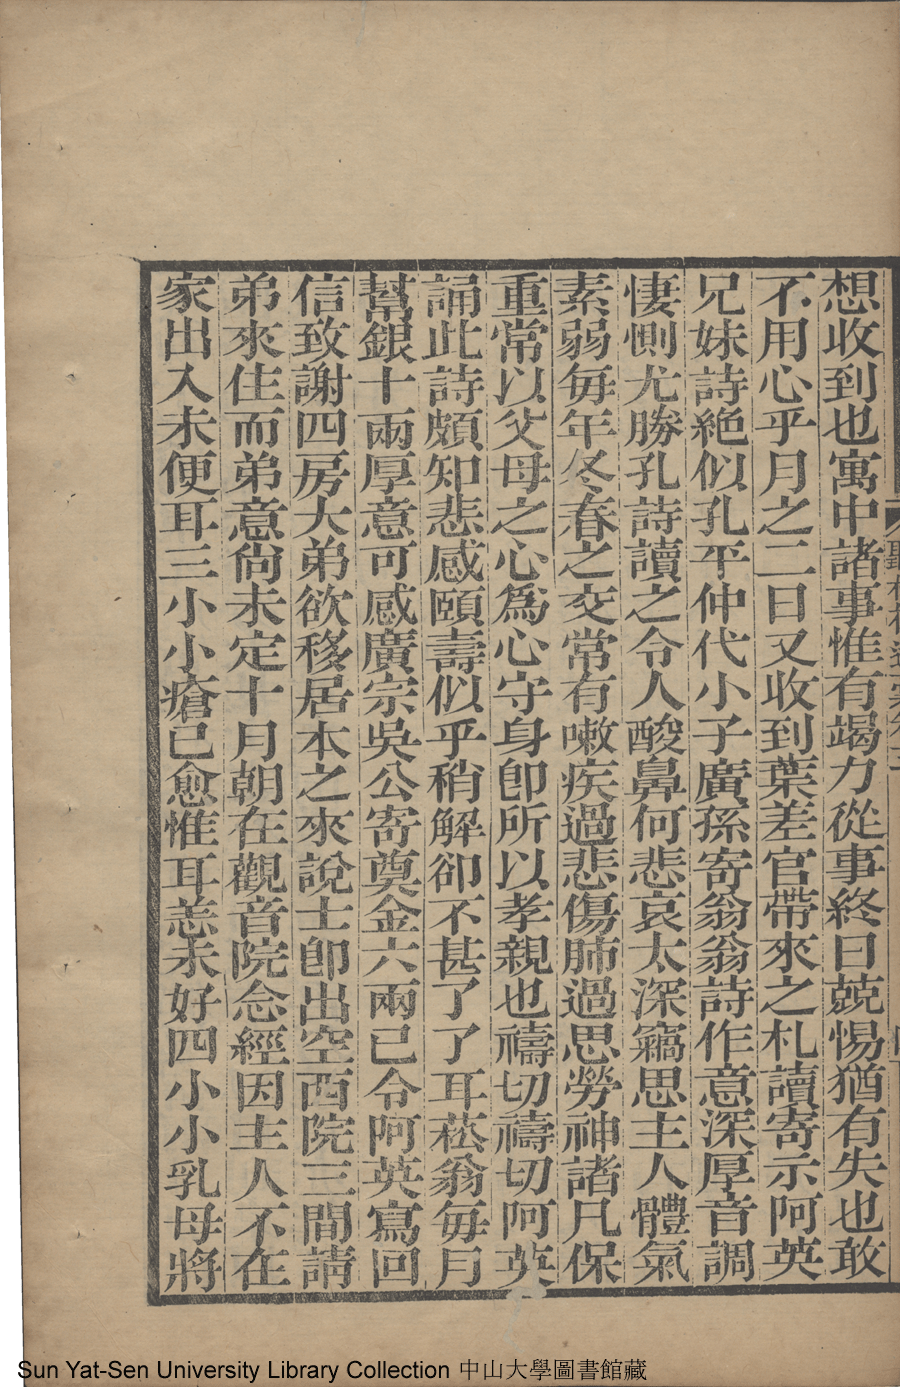 想收到也寓中諸事惟有竭力從事終日兢惕猶有失也敢
不用心乎月之二日又收到葉差官帶來之札讀寄示阿英
兄妹詩絕似孔平仲代小子廣孫寄翁翁詩作意深厚音調
悽惻尤勝孔詩讀之令人酸鼻何悲哀太深竊思主人體氣
素弱每年冬春之交常有嗽疾過悲傷肺過思勞神諸凡保
重常以父母之心為心守身卽所以孝親也禱切禱切阿英
誦此詩頗知悲感頤壽似乎稍解卻不甚了了耳菘翁每月
幫銀十兩厚意可感廣宗吳公寄奠金六兩已令阿英寫回
信致謝四房大弟欲移居本之來說士卽出空西院三間請
弟來住而弟意尚未定十月朝在觀音院念經因主人不在
家出入未便耳三小小瘡已愈惟耳恙未好四小小乳母將
Sun Yat-Sen University Library Collection 中山大學圖書館藏